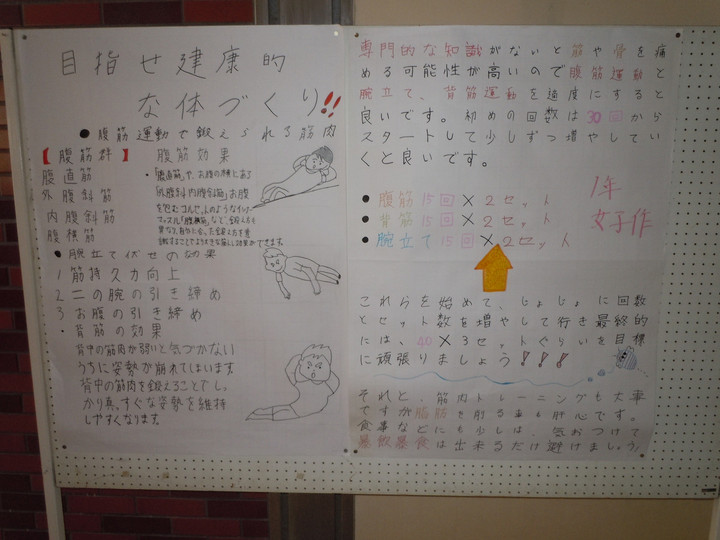 目指せ健康的
な体づくり!!
●腹筋運動で鍛えられる筋肉
【腹筋群】
腹直筋
外腹斜筋
内腹斜筋
腹横筋
腹筋効果
●腕立て伏せの効果
1 筋持久力向上
2 二の腕の引き締め
3 お腹の引き締め
・背筋の効果
背中の筋肉が弱いと気づかない
うちに姿勢が崩れてしまいます
背中の筋肉を鍛えることでしっ
かり真っすぐな姿勢を維持
しやすくなります。
専門的な知識がないと筋や骨を痛
める可能性が高いので腹筋運動と
腕立て、背筋運動を適度にすると
良いです。初めの回数は30回から
スタートして少しずつ増やしてい
くと良いです。
●腹筋15回×2セット
●背筋15回×2セット
●腕立て15回×2セット
1年
女子作
これらを始めて、じょじょに回数
とセット数を増やして行き最終的
には、40×3セットぐらいを目標
に頑張りましょう!!!
それと、筋肉トレーニングも大事
ですが脂肪を削る事も肝心です。
食事などにも少しは、気おつけて
暴飲暴食は出来るだけ避けましょう。